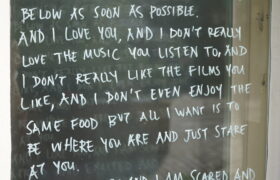 BELOW AS SOON AS POSSIBLE.
AND I LOVE YOU, AND I DON'T REALLY
LOVE THE MUSIC YOU LISTEN TO, AND
I DON'T REALLY LIKE THE FILMS YOU
LIKE, AND I DON'T EVEN ENJOY THE
SAME FOOD BUT ALL I WANT IS TO
BE WHERE YOU ARE AND JUST STARE
AT YOU.
AND I AM SCARED AND